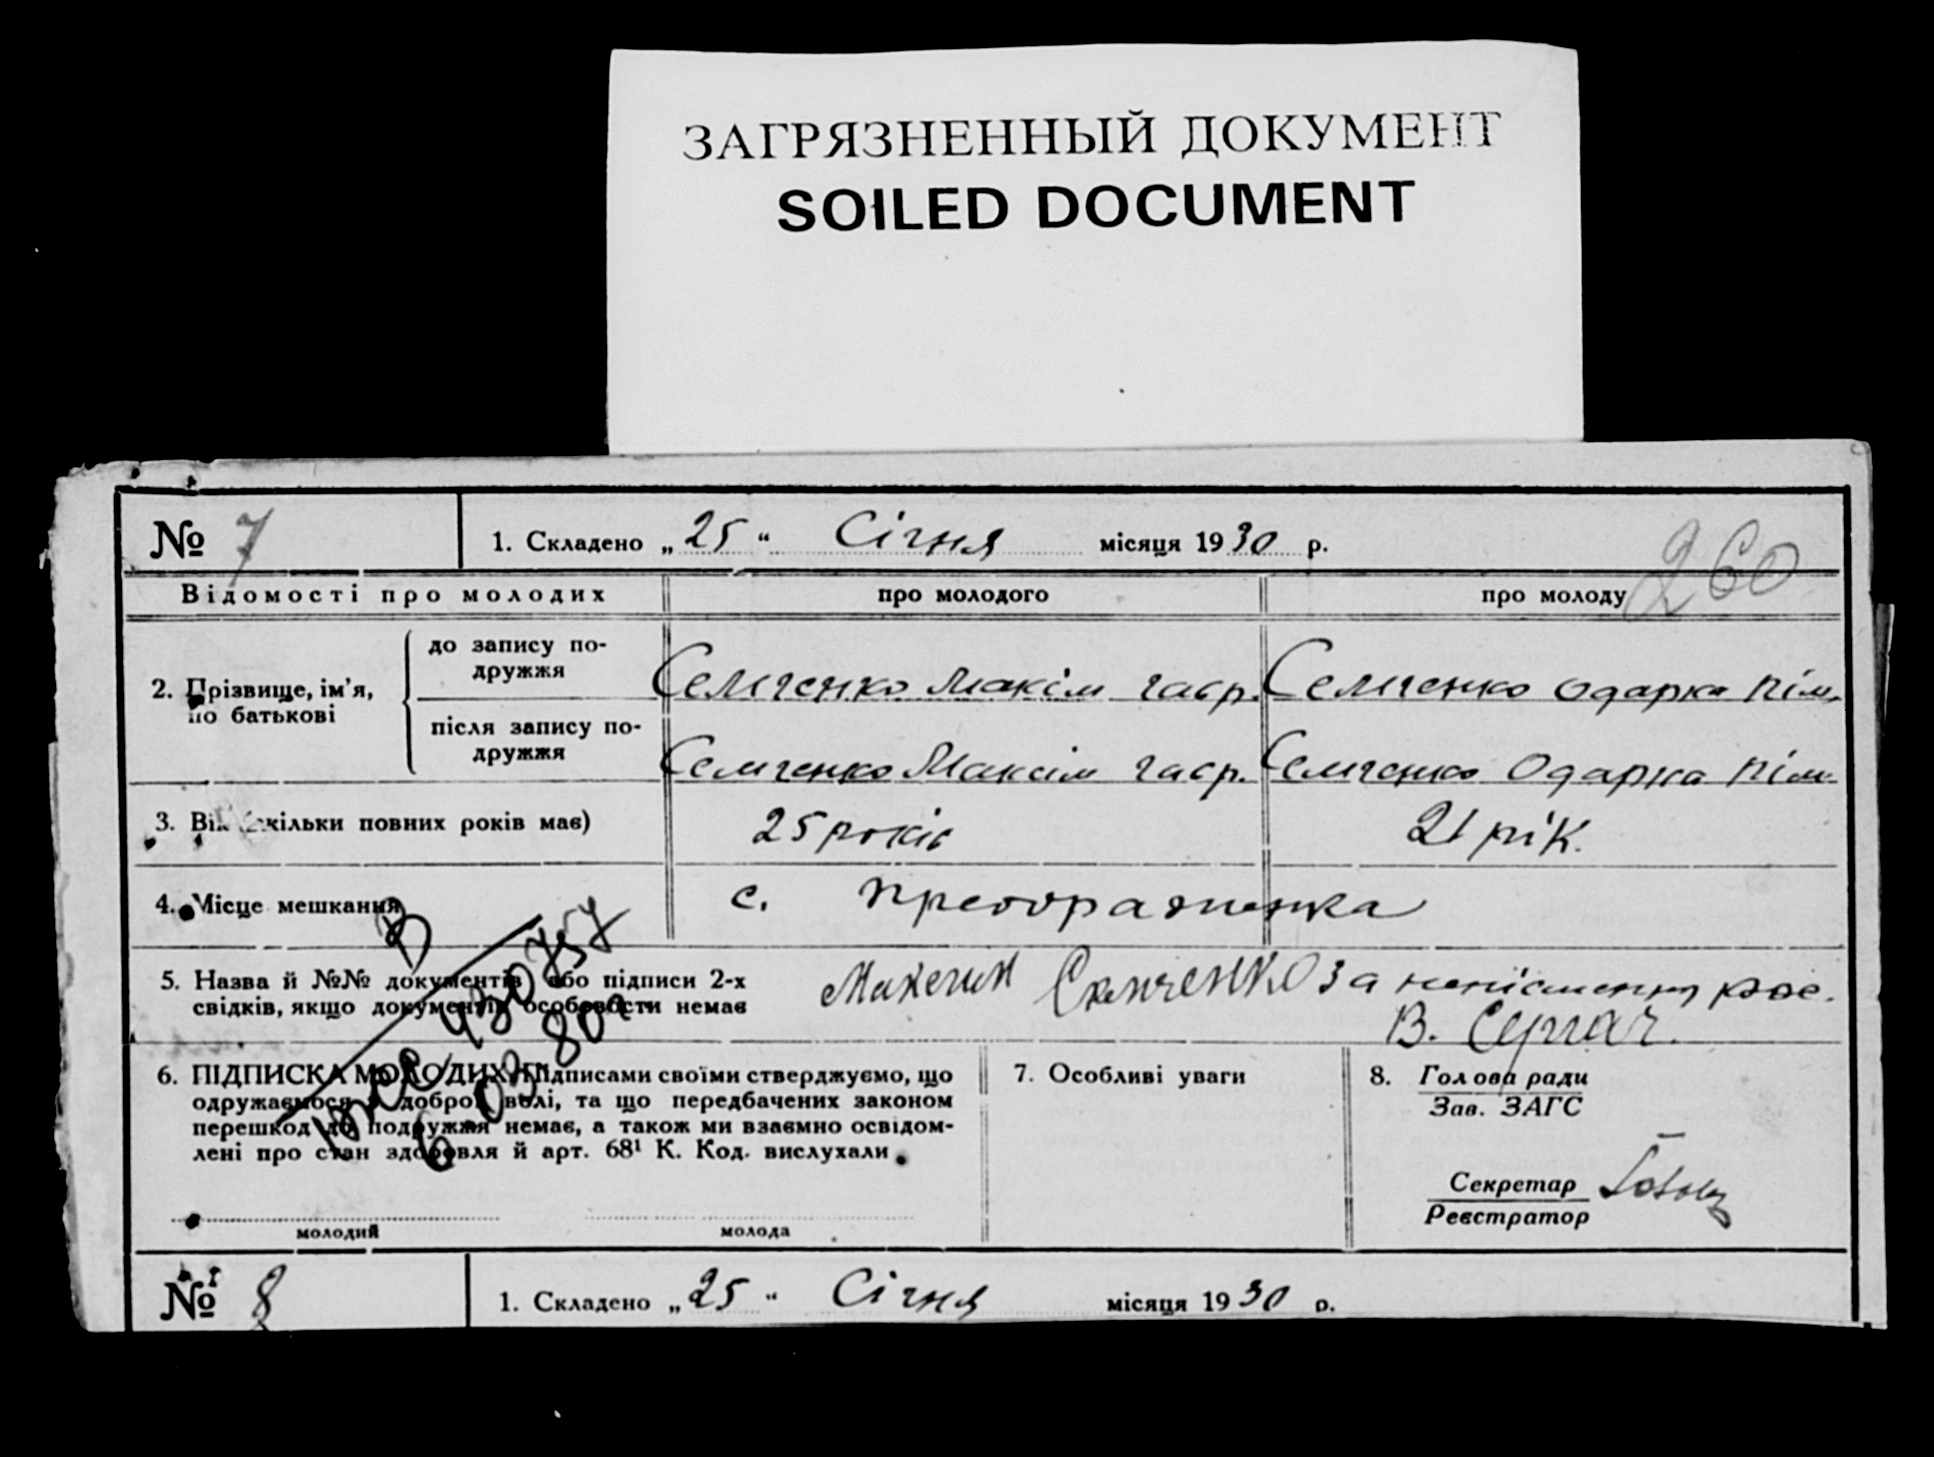 ЗАГРЯЗНЕННЫЙ ДОКУМЕНТ
SOILED DOCUMENT
№ 7
1. Складено „25“ Січня місяця 1930 р.
260
Відомості про молодих
про молодого
про молоду
2. Прізвище, ім'я, по батькові
до запису подружжя
Семченко Максім гавр.
Семченко Одарка Пім.
після запису подружжя
Семченко Максім гавр.
Семченко Одарка Пім.
3. Вік (скільки повних років має)
25 років
21 рік.
4. Місце мешкання
с. Преображенка
5. Назва й №№ документів або підписи 2-х
свідків, якщо документів особовости немає
Семченко За непісменну роз.
В. Сургач.
6. ПІДПИСКА МОЛОДИХ: Підписами своїми стверджуємо, що
одружаємося з доброї волі, та що передбачених законом
перешкод до подружжя немає, а також ми взаємно освідом-
лені про стан здоровля й арт. 68¹ К. Код. вислухали
молодий
молода
7. Особливі уваги
8. Голова ради
Зав. ЗАГС
Секретар
Реєстратор
В
430757
№ 8
1. Складено „25“ Січня місяця 1930 р.